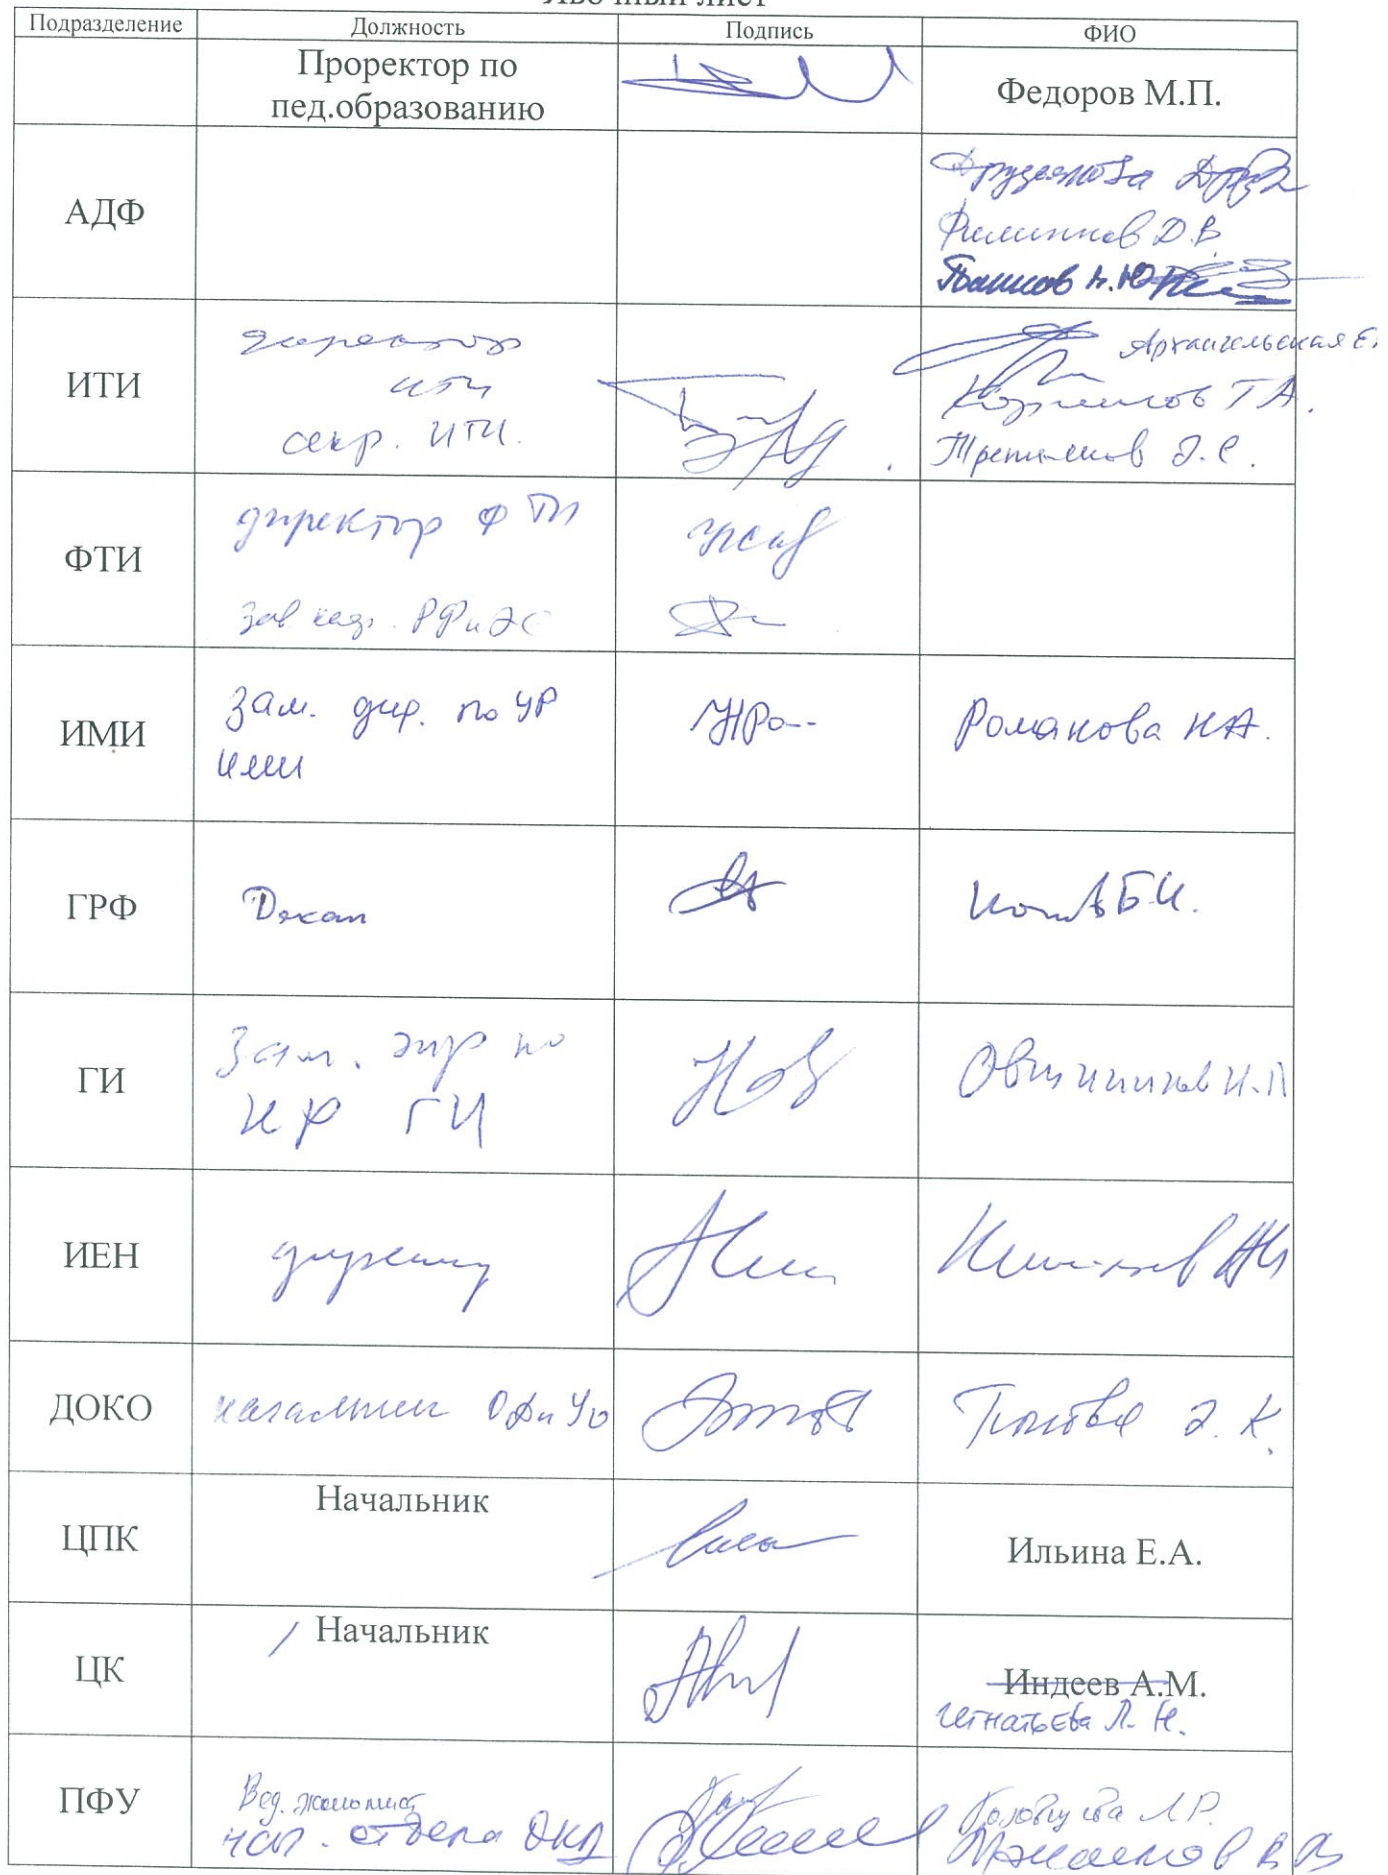 Явочный лист
Подразделение Должность Подпись ФИО
Проректор по
пед.образованию
Федоров М.П.
АДФ
Филиппов Д.В.
ИТИ
директор
ИТИ
секр. ИТИ.
Архангельская Е.
Корнилов Т.А.
Третьяков Э.С.
ФТИ
директор ФТИ
зав каф. РФиЭС
ИМИ
Зам. дир. по УР
ИМИ
Романова НА.
ГРФ
Декан
Попов Б.И.
ГИ
Зам. дир по
НР ГИ
Овчинников И.П
ИЕН
директор
ДОКО
начальник
Попова Э. К.
ЦПК
Начальник
Ильина Е.А.
ЦК
Начальник
Индеев А.М.
Игнатьева Л. Н.
ПФУ
Вед. экономист
нач. отдела